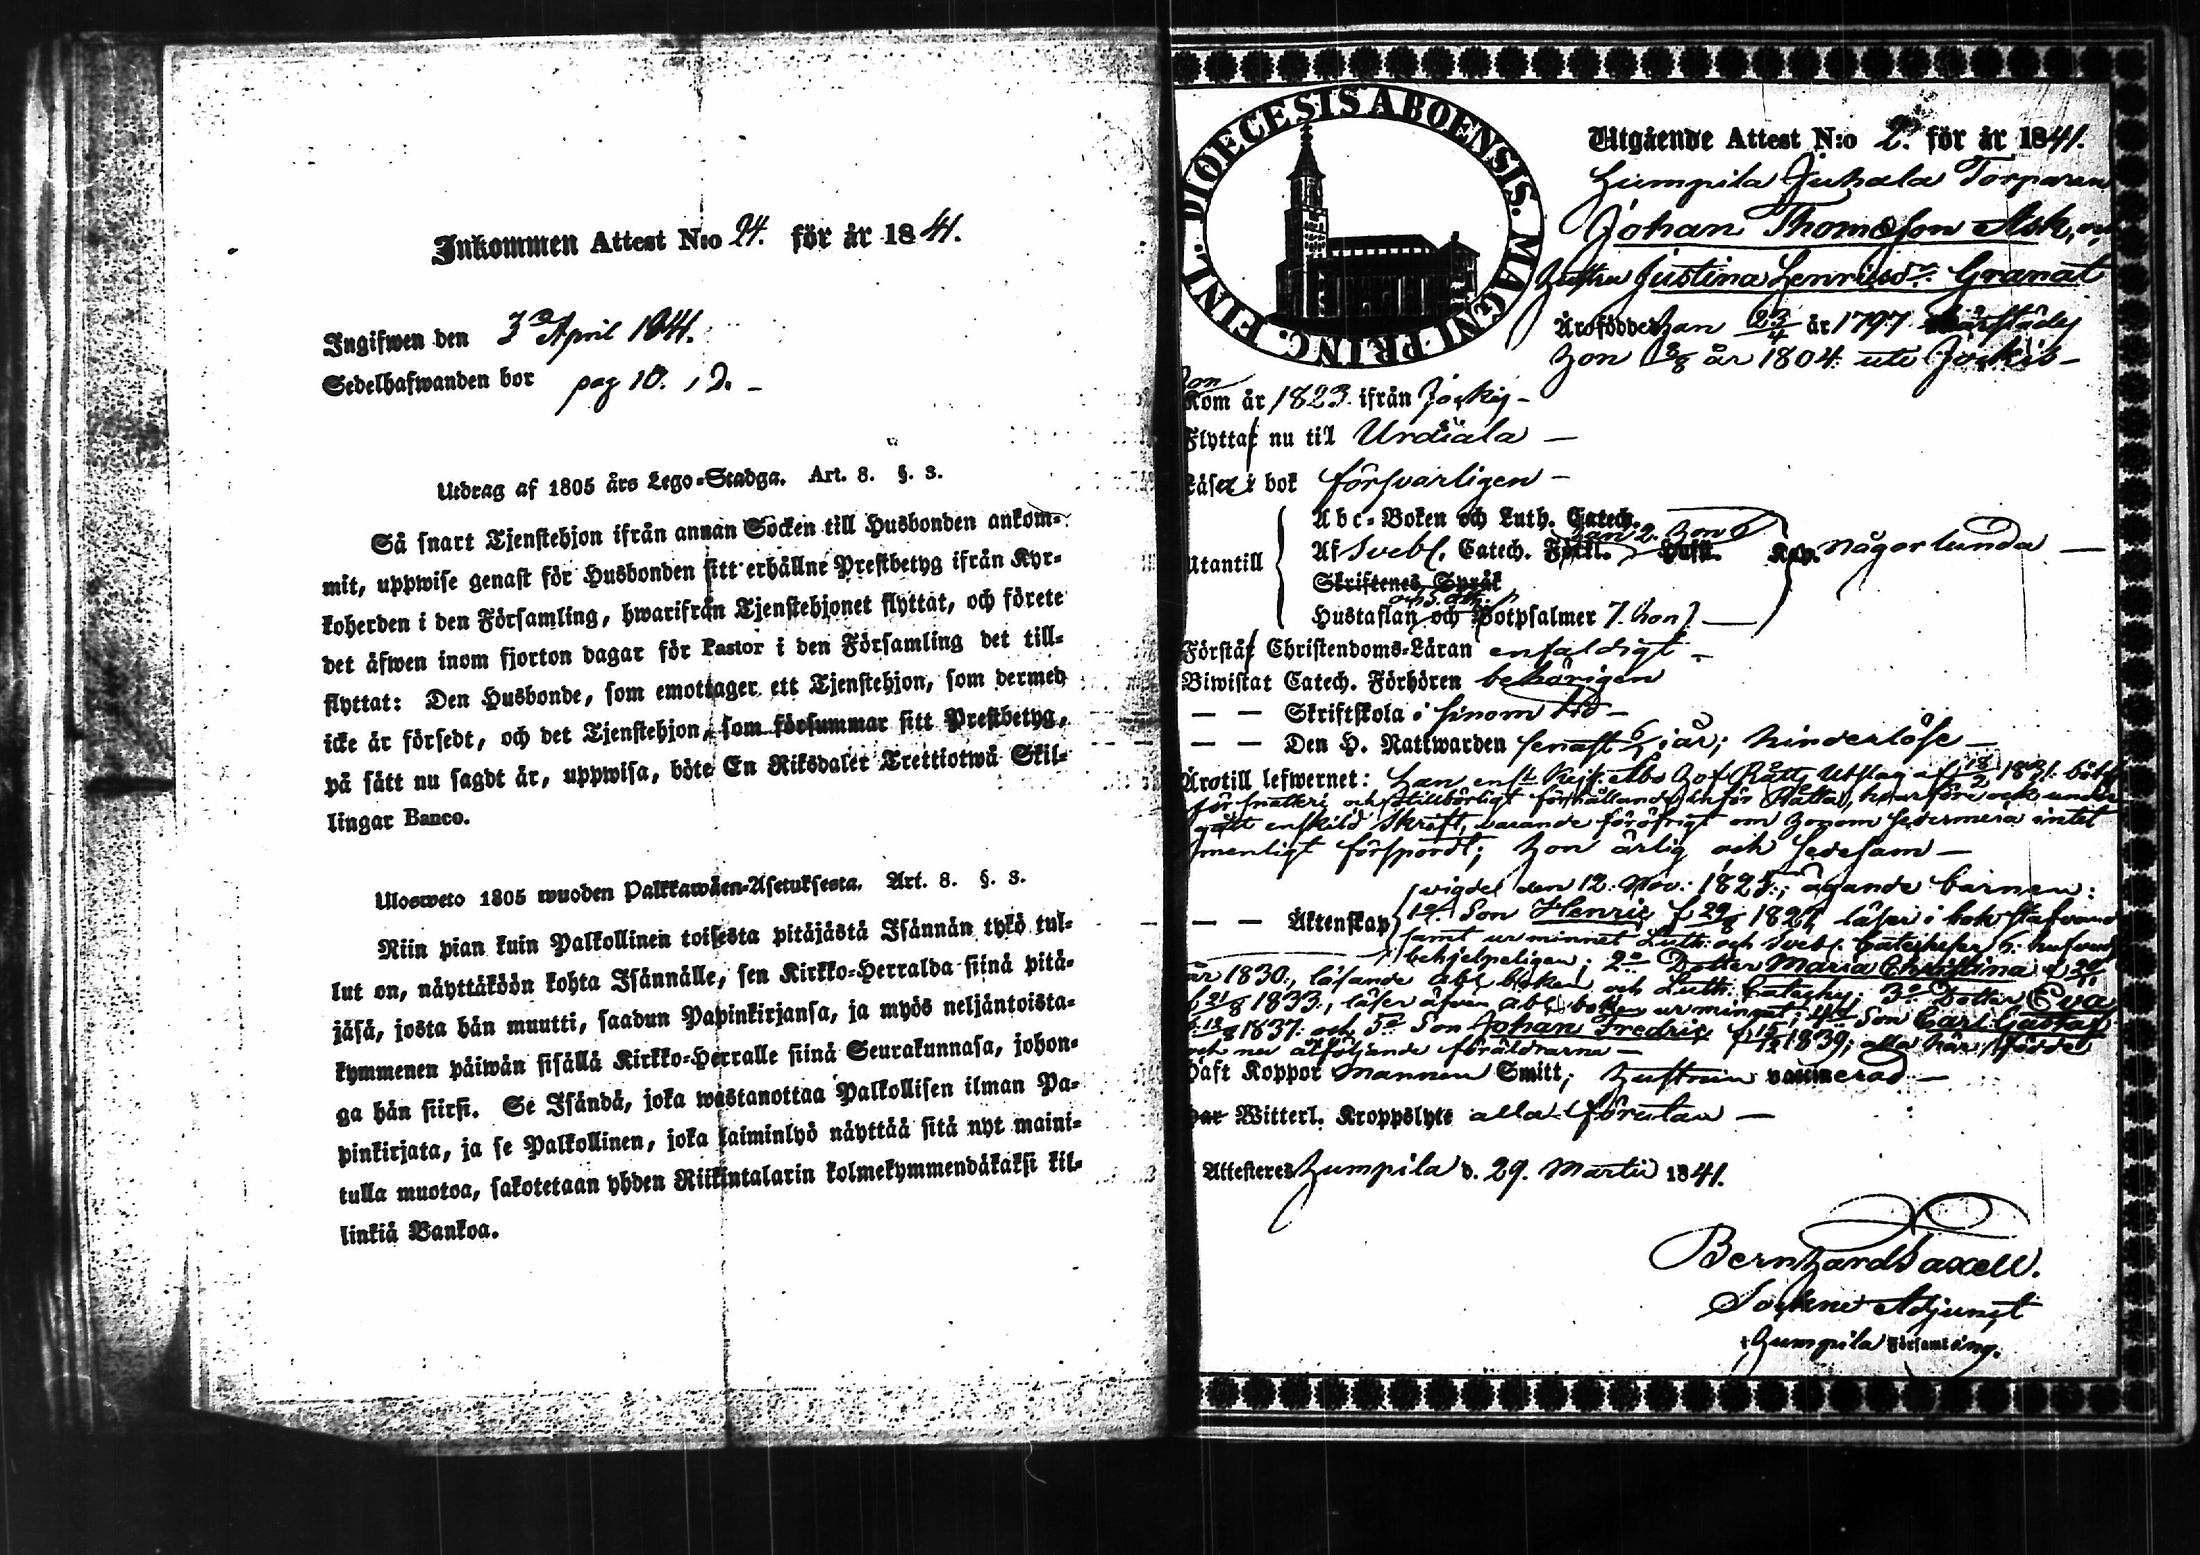 Inkommen Attest N:o 24. för år 1841.
Ingifwen den 3 April 1841.
Sedelhafwanden bor pag 10.
Utdrag af 1805 års Lego-Stadga. Art. 8. §. 3.
Så snart Tjenstehjon ifrån annan Socken till Husbonden ankom-
mit, uppwise genast för Husbonden sitt erhållne Prestbetyg ifrån Kyr-
koherden i den Församling, hwarifrån Tjenstehjonet flyttat, och förete
det äfwen inom fjorton dagar för Pastor i den Församling det till-
flyttat: Den Husbonde, som emottager ett Tjenstehjon, som dermed
icke är försedt, och det Tjenstehjon, som försummar sitt Prestbetyg,
på sätt nu sagdt är, uppwisa, böte En Riksdaler Trettiotwå Skil-
lingar Banco.
Ulosweto 1805 wuoden Palkkawäen-Asetuksesta. Art. 8. §. 3.
Niin pian kuin Palkollinen toisesta pitäjästä Isännän tykö tul-
lut on, näyttäköön kohta Isännälle, sen Kirkko-Herralda siinä pitä-
jäsä, josta hän muutti, saadun Papinkirjansa, ja myös neljäntoista-
kymmenen päiwän sisällä Kirkko-Herralle siinä Seurakunnasa, johon-
ga hän siirsi. Se Isändä, joka wastanottaa Palkollisen ilman Pa-
pinkirjata, ja se Palkollinen, joka laiminlyö näyttää sitä nyt maini-
tulla muotoa, sakotetaan yhden Riikintalarin kolmekymmendäkaksi kil-
linkiä Bankoa.
DIOECESIS ABOENSIS. MAGNI PRINC. FINL.
Utgående Attest N:o 2. för år 1841.
Humpila Juhala Torparen
Johan Thomasson Ask, och
Hustru Justina Henricsdr Granat
Äro födde han 23/4 år 1797 härstädes
hon 8/8 år 1804 uti Jockis
hon
Kom år 1823 ifrån Jockis
Flytta nu till Urdiala
Läsa i bok försvarligen
Utantill
Abc-Boken och Luth. Catech.
Af Svebl. Catech. han 2. hon 6 Kap. någorlunda
Skriftenes Språk
Hustaflan och Botpsalmer 7. hon 7
Förstå Christendoms-Läran enfaldigt
Biwistat Catech. Förhören behörigen
— — Skriftskola i sinom tid
— — Den H. Nattwarden senast i år; hinderlöse
Äro till lefwernet: han enl. Kejs. Åbo Hof Rätts Utslag af 18/2 böt
för snatteri och otillbörligt förhållande inför Rätta, hvarföre ock under
gått enskild skrift, varande föröfrigt om honom sedermera intet
menligt förspordt; hon ärlig och sedesam
— — Äktenskap vigde den 12 Nov. 1825, ägande barnen:
1o Son Henric f. läser i bok
samt ur minnet Luth. och Svebl. Cateches
behjelpeligen; 2o Dotter Maria Christina
år 1830, läsande abc boken och Luth. Cateches; 3o Dotter Eva
1833, läser äfven abc boken ur minnet; Son Carl Gustaf
1837 och 5o Son Johan Fredric f. 1839; alla här födde
och nu åtföljande föräldrarne
Haft Koppor Mannen Smitt; Hustrun vaccinerad
har Witterl. Kroppslyte alla förutan
Attesteres Humpila d. 29. Martii 1841.
Bernhard Saxell.
Sockne Adjunct
i Humpila Församling.